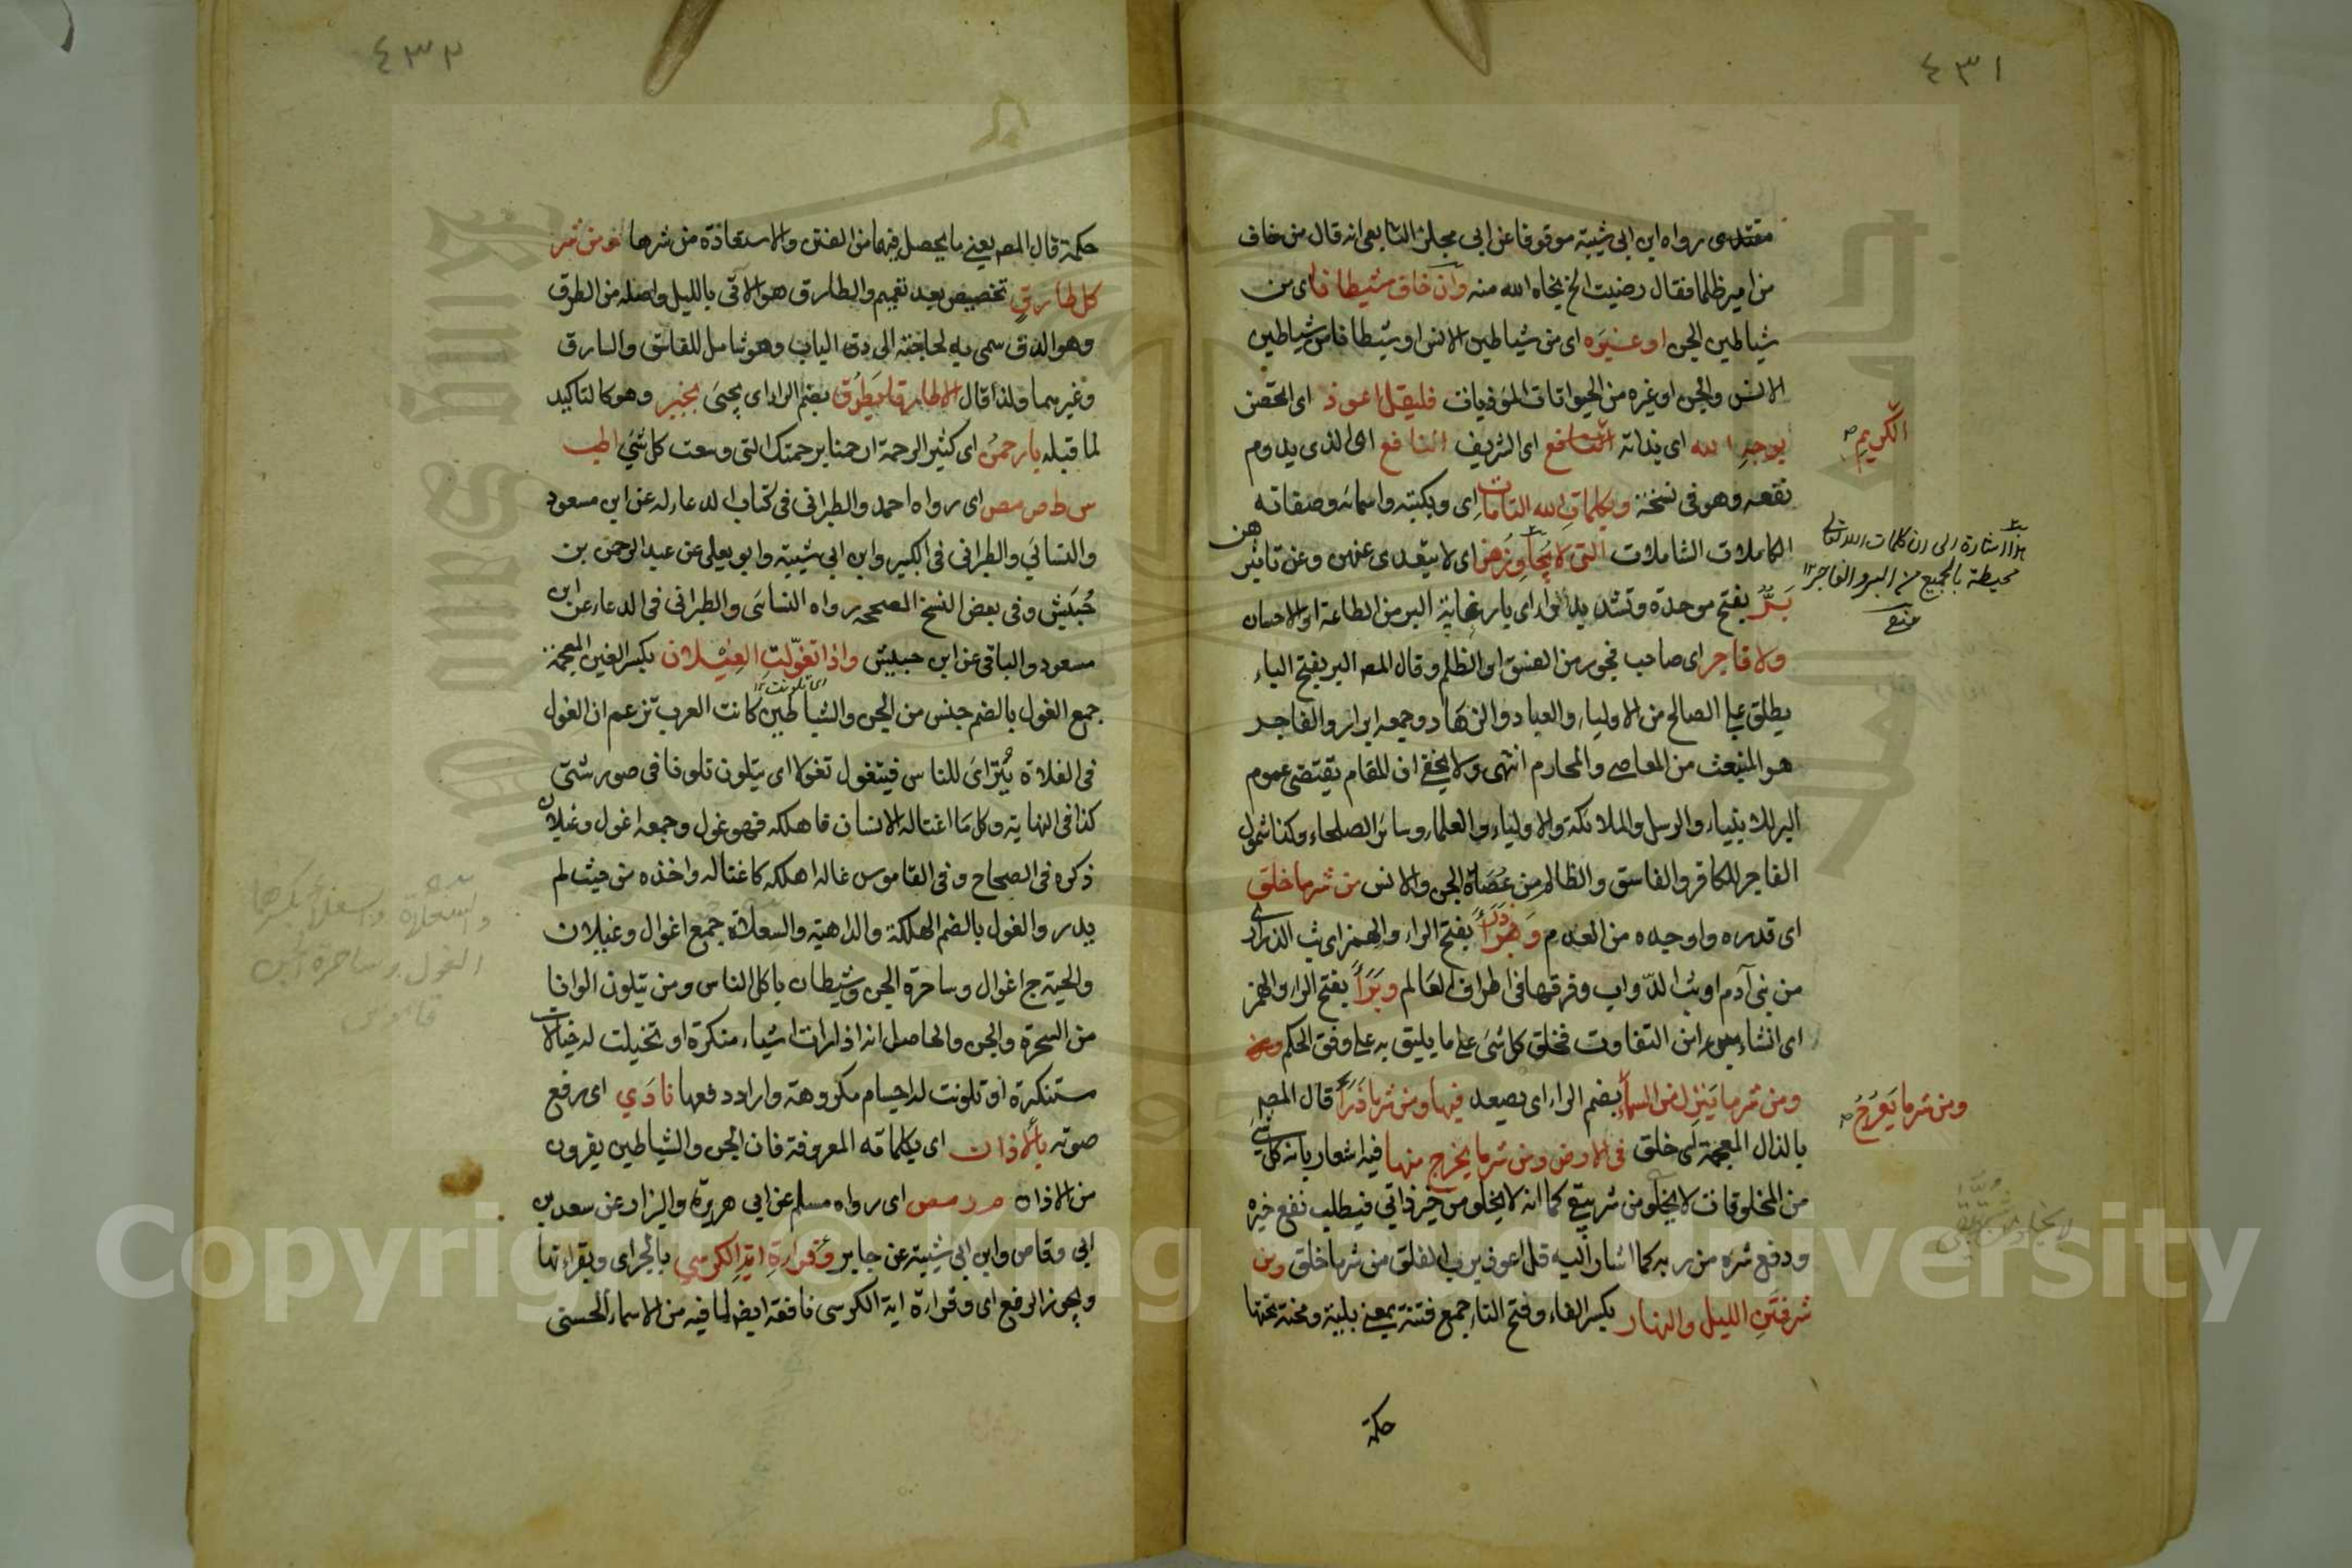 ٤٣١
مقتدى رواه ابن ابى شيبة موقوفا عن ابى مجلز التابعى انه قال من خاف
من امير ظلما فقال رضيت الخ نجاه الله منه وان خاف شيطانا اى من
شياطين الجن او غيره اى من شياطين الانس او شيطانا من شياطين
الانس والجن او غيره من الحيوانات المؤذيات فليقل اعوذ اى اتحصن
بوجه الله اى بذاته اى الشريف النافع اى الذى يدوم
الكريم
نفعه وهو فى نسخة وبكلمات الله التامات اى وبكتبه واسمائه وصفاته
الكاملات الشاملات التى لا يجاوزهن اى لا يتعدى عنهن وعن تاثيرهن
هذا اشارة الى ان كلمات الله تعالى
محيطة بالجميع من البر والفاجر ١٢
بَرٌّ بفتح موحدة وتشديد الراء اى بار غاية البر من الطاعة او الاحسان
ولا فاجر اى صاحب فجور من الفسق او الظلم وقال المصـ البر بفتح الباء
يطلق على الصالح من الاولياء والعباد والزهاد وجمعه ابرار والفاجر
هو المنبعث من المعاصى والمحارم انتهى ولا يخفى ان المقام يقتضى عموم
البر للانبياء والرسل والملائكة والاولياء والعلماء وسائر الصلحاء وكذا شمول
الفاجر للكافر والفاسق والظالم من عصاة الجن والانس من شر ما خلق
اى قدره واوجده من العدم وذرأ بفتح الراء والهمز اى بث الذرارى
من بنى آدم او بث الدواب وفرقها فى اطراف العالم وبرأ بفتح الراء والهمز
اى انشاء من التفاوت فخلق كل شئ على ما يليق به على وفق الحكم
ومن شر ما ينزل من السماء بضم الراء اى يصعد فيها ومن شر ما ذرأ قال المصـ
ومن شر ما يعرج
بالذال المعجمة اى خلق فى الارض ومن شر ما يخرج منها فيه اشعار بانه كل شئ
من المخلوقات لا يخلو من شر يتبع كما انه لا يخلو من خير ذاتى فيطلب نفع خيره
ودفع شره من ربه كما اشار اليه قل اعوذ برب الفلق من شر ما خلق ومن
شر فتن الليل والنهار بكسر الفاء وفتح التاء جمع فتنة بمعنى بلية ومحنة تحتها
حكمة
٤٣٢
حكمة قال المصـ يعنى ما يحصل فيهما من الفتن والاستعاذة من شرها ومن شر
كل طارق تخصيص بعد تعميم والطارق هو الآتى بالليل واصله من الطرق
وهو الدق سمى به لحاجته الى دق الباب وهو شامل للفاسق والسارق
وغيرهما ولذا قال الا طارقا يطرق بضم الراء اى يجئ بخير وهو كالتاكيد
لما قبله يا رحمن اى كثير الرحمة ارحمنا برحمتك التى وسعت كل شئ اطب
س ط ص مص اى رواه احمد والطبرانى فى كتاب الدعاء له عن ابن مسعود
والنسائى والطبرانى فى الكبير وابن ابى شيبة وابو يعلى عن عبد الرحمن بن
خنبش وفى بعض النسخ المصححه رواه النسائى والطبرانى فى الدعاء عن ابن
مسعود والباقى عن ابن خنبش واذا تغولت الغيلان بكسر الغين المعجمة
اى تلونت ١٢
جمع الغول بالضم جنس من الجن والشياطين كانت العرب تزعم ان الغول
فى الفلاة يتراءى للناس فيتغول تغولا اى يتلون تلونا فى صور شتى
كذا فى النهاية وكل ما اغتاله الانسان فاهلكه فهو غول وجمعه اغول وغيلان
ذكره فى الصحاح وفى القاموس غاله اهلكه كاغتاله واخذه من حيث لم
يدر والغول بالضم الهلكة والداهية والسعلاة جمع اغوال وغيلان
والسعلاة والسعلا بكسرهما
الغول وساحرة الجن
قاموس
والحية ج اغوال وساحرة الجن وشيطان ياكل الناس ومن يتلون الوانا
من السحرة والجن والحاصل انه اذا رات اشياء منكرة او تخيلت له خيالات
مستنكرة او تلونت له اجسام مكروهة واراد دفعها نادى اى رفع
صوته بالاذان اى بكلماته المعروفة فان الجن والشياطين يفرون
من الاذان م ر مص اى رواه مسلم عن ابى هريرة والبزار عن سعد بن
ابى وقاص وابن ابى شيبة عن جابر وقراءة اية الكرسى بالجر اى وبقراءتها
ويجوز الرفع اى وقراءة اية الكرسى نافعة ايضـ لما فيه من الاسماء الحسنى
Copyright © King Saud University